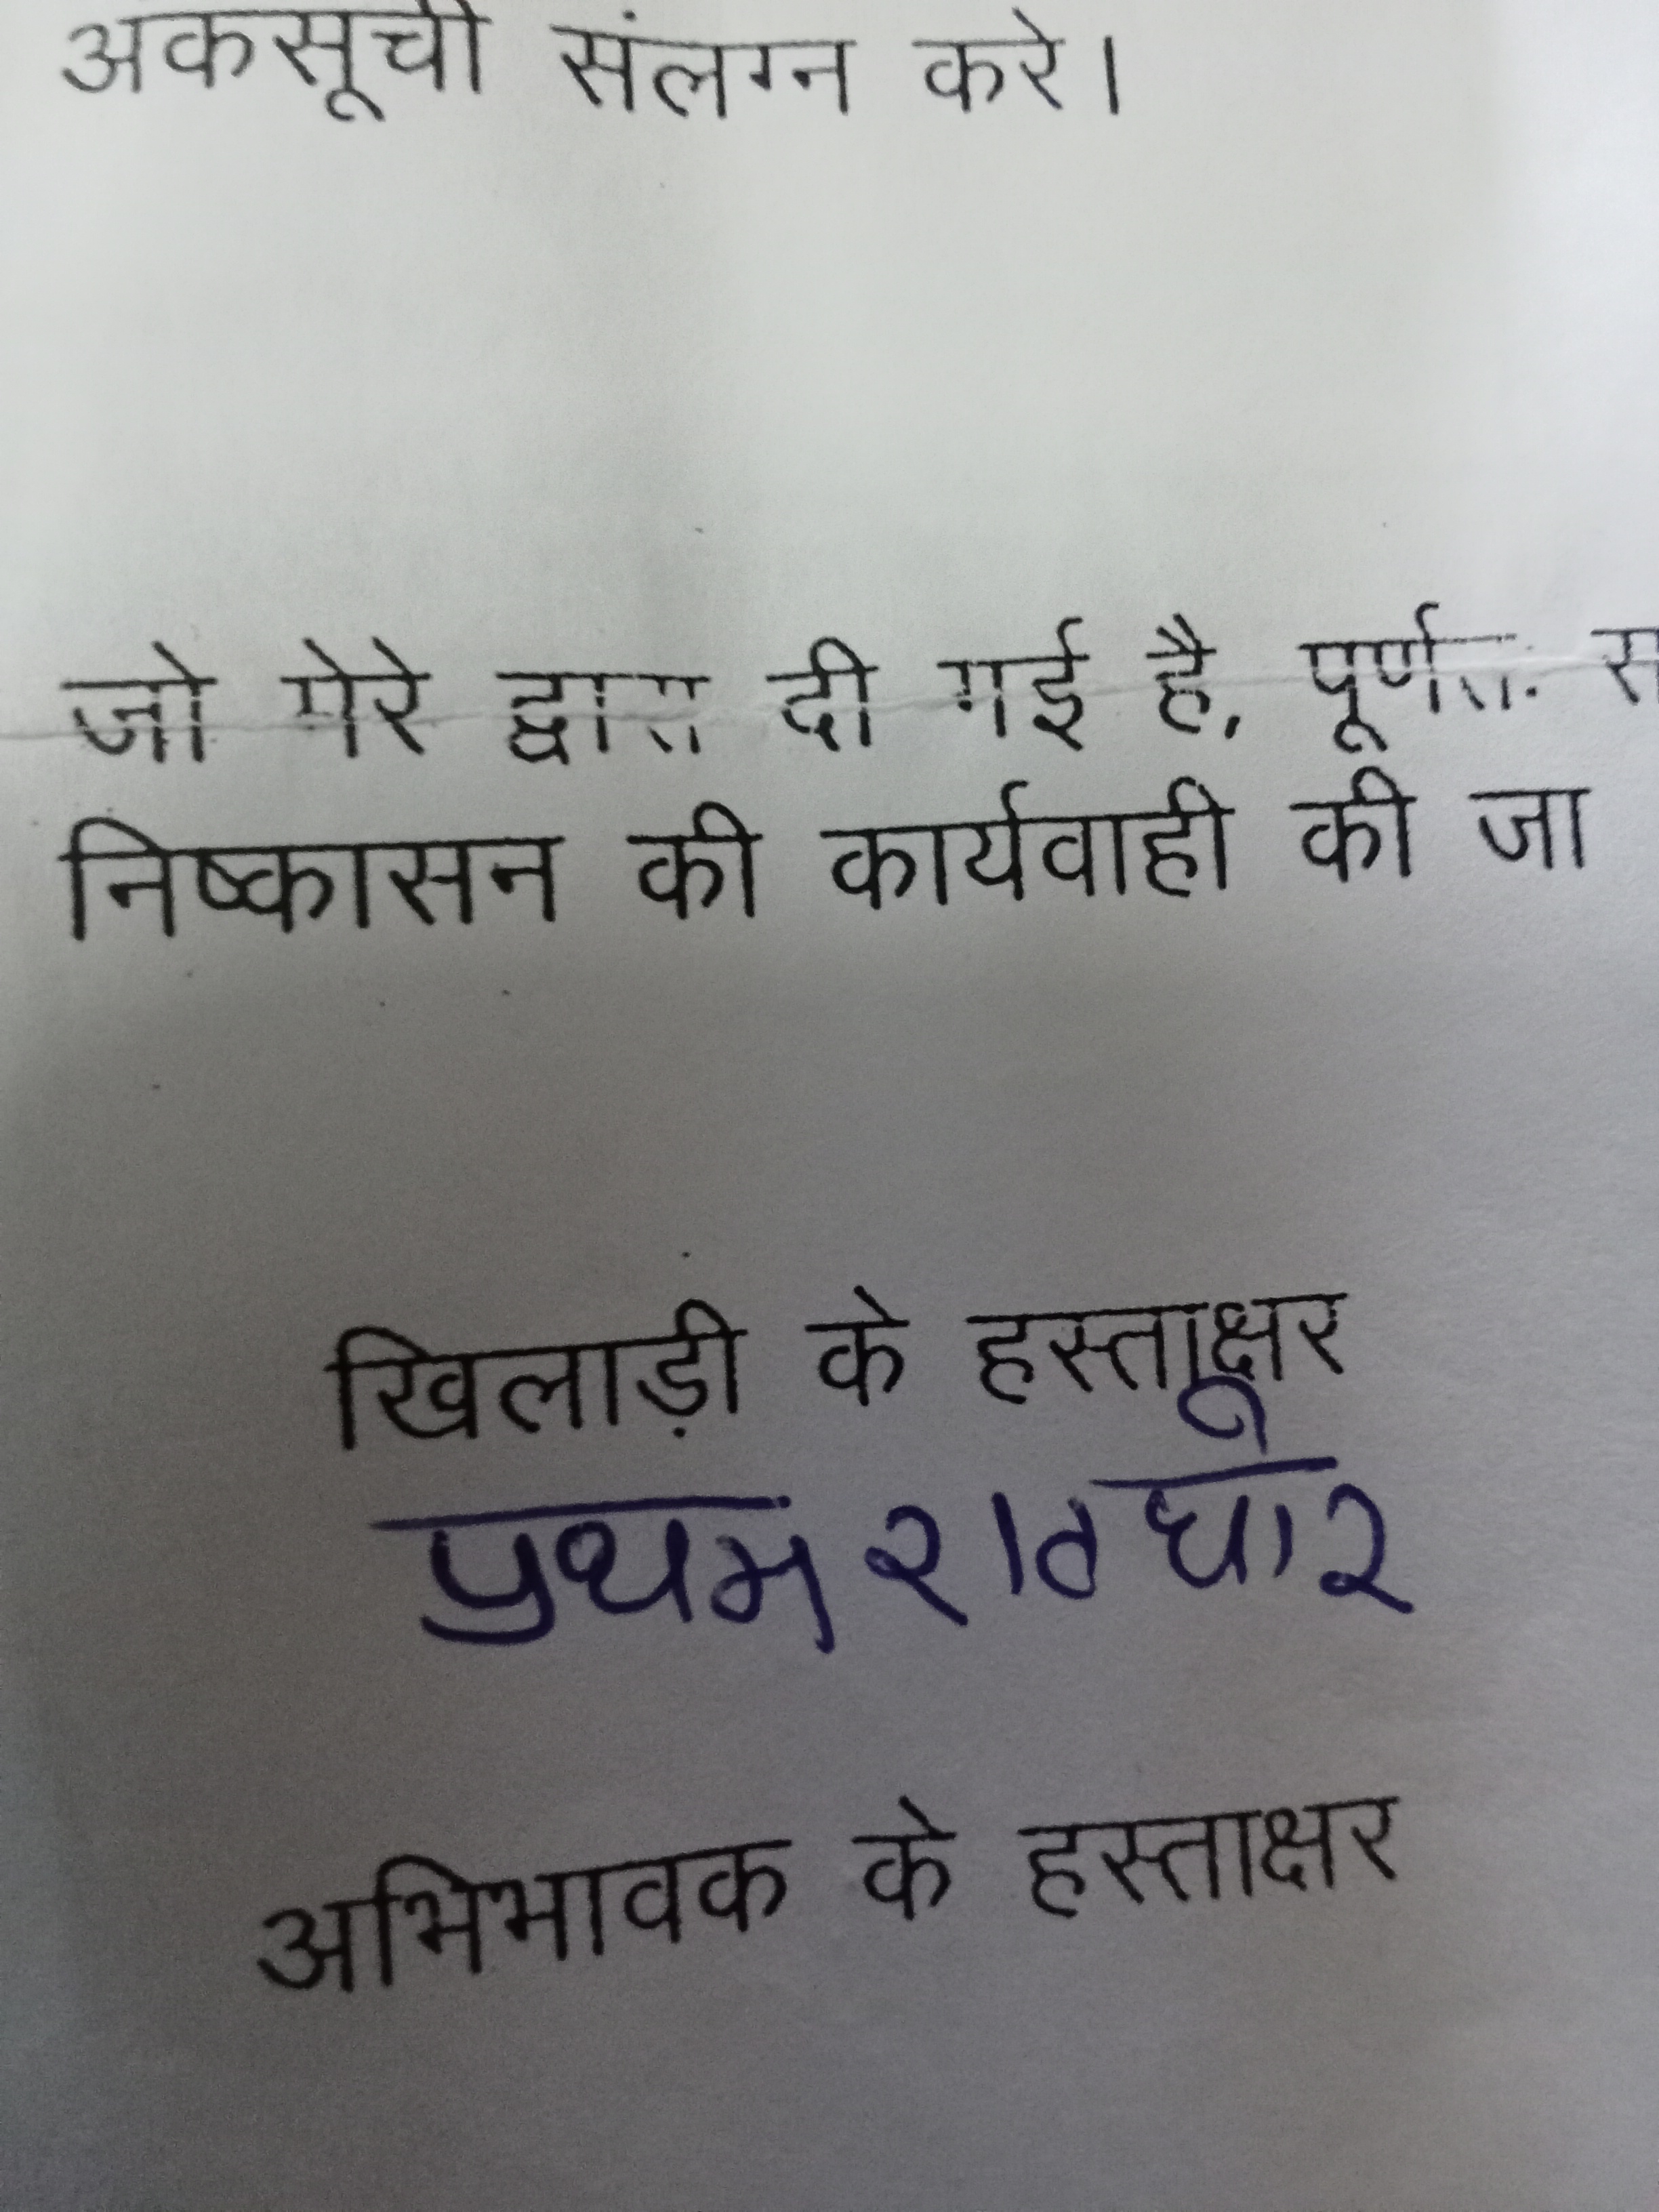 अंकसूची संलग्न करे।
जो मेरे द्वारा दी गई है, पूर्णतः
निष्कासन की कार्यवाही की जा
खिलाड़ी के हस्ताक्षर
प्रथम
अभिभावक के हस्ताक्षर